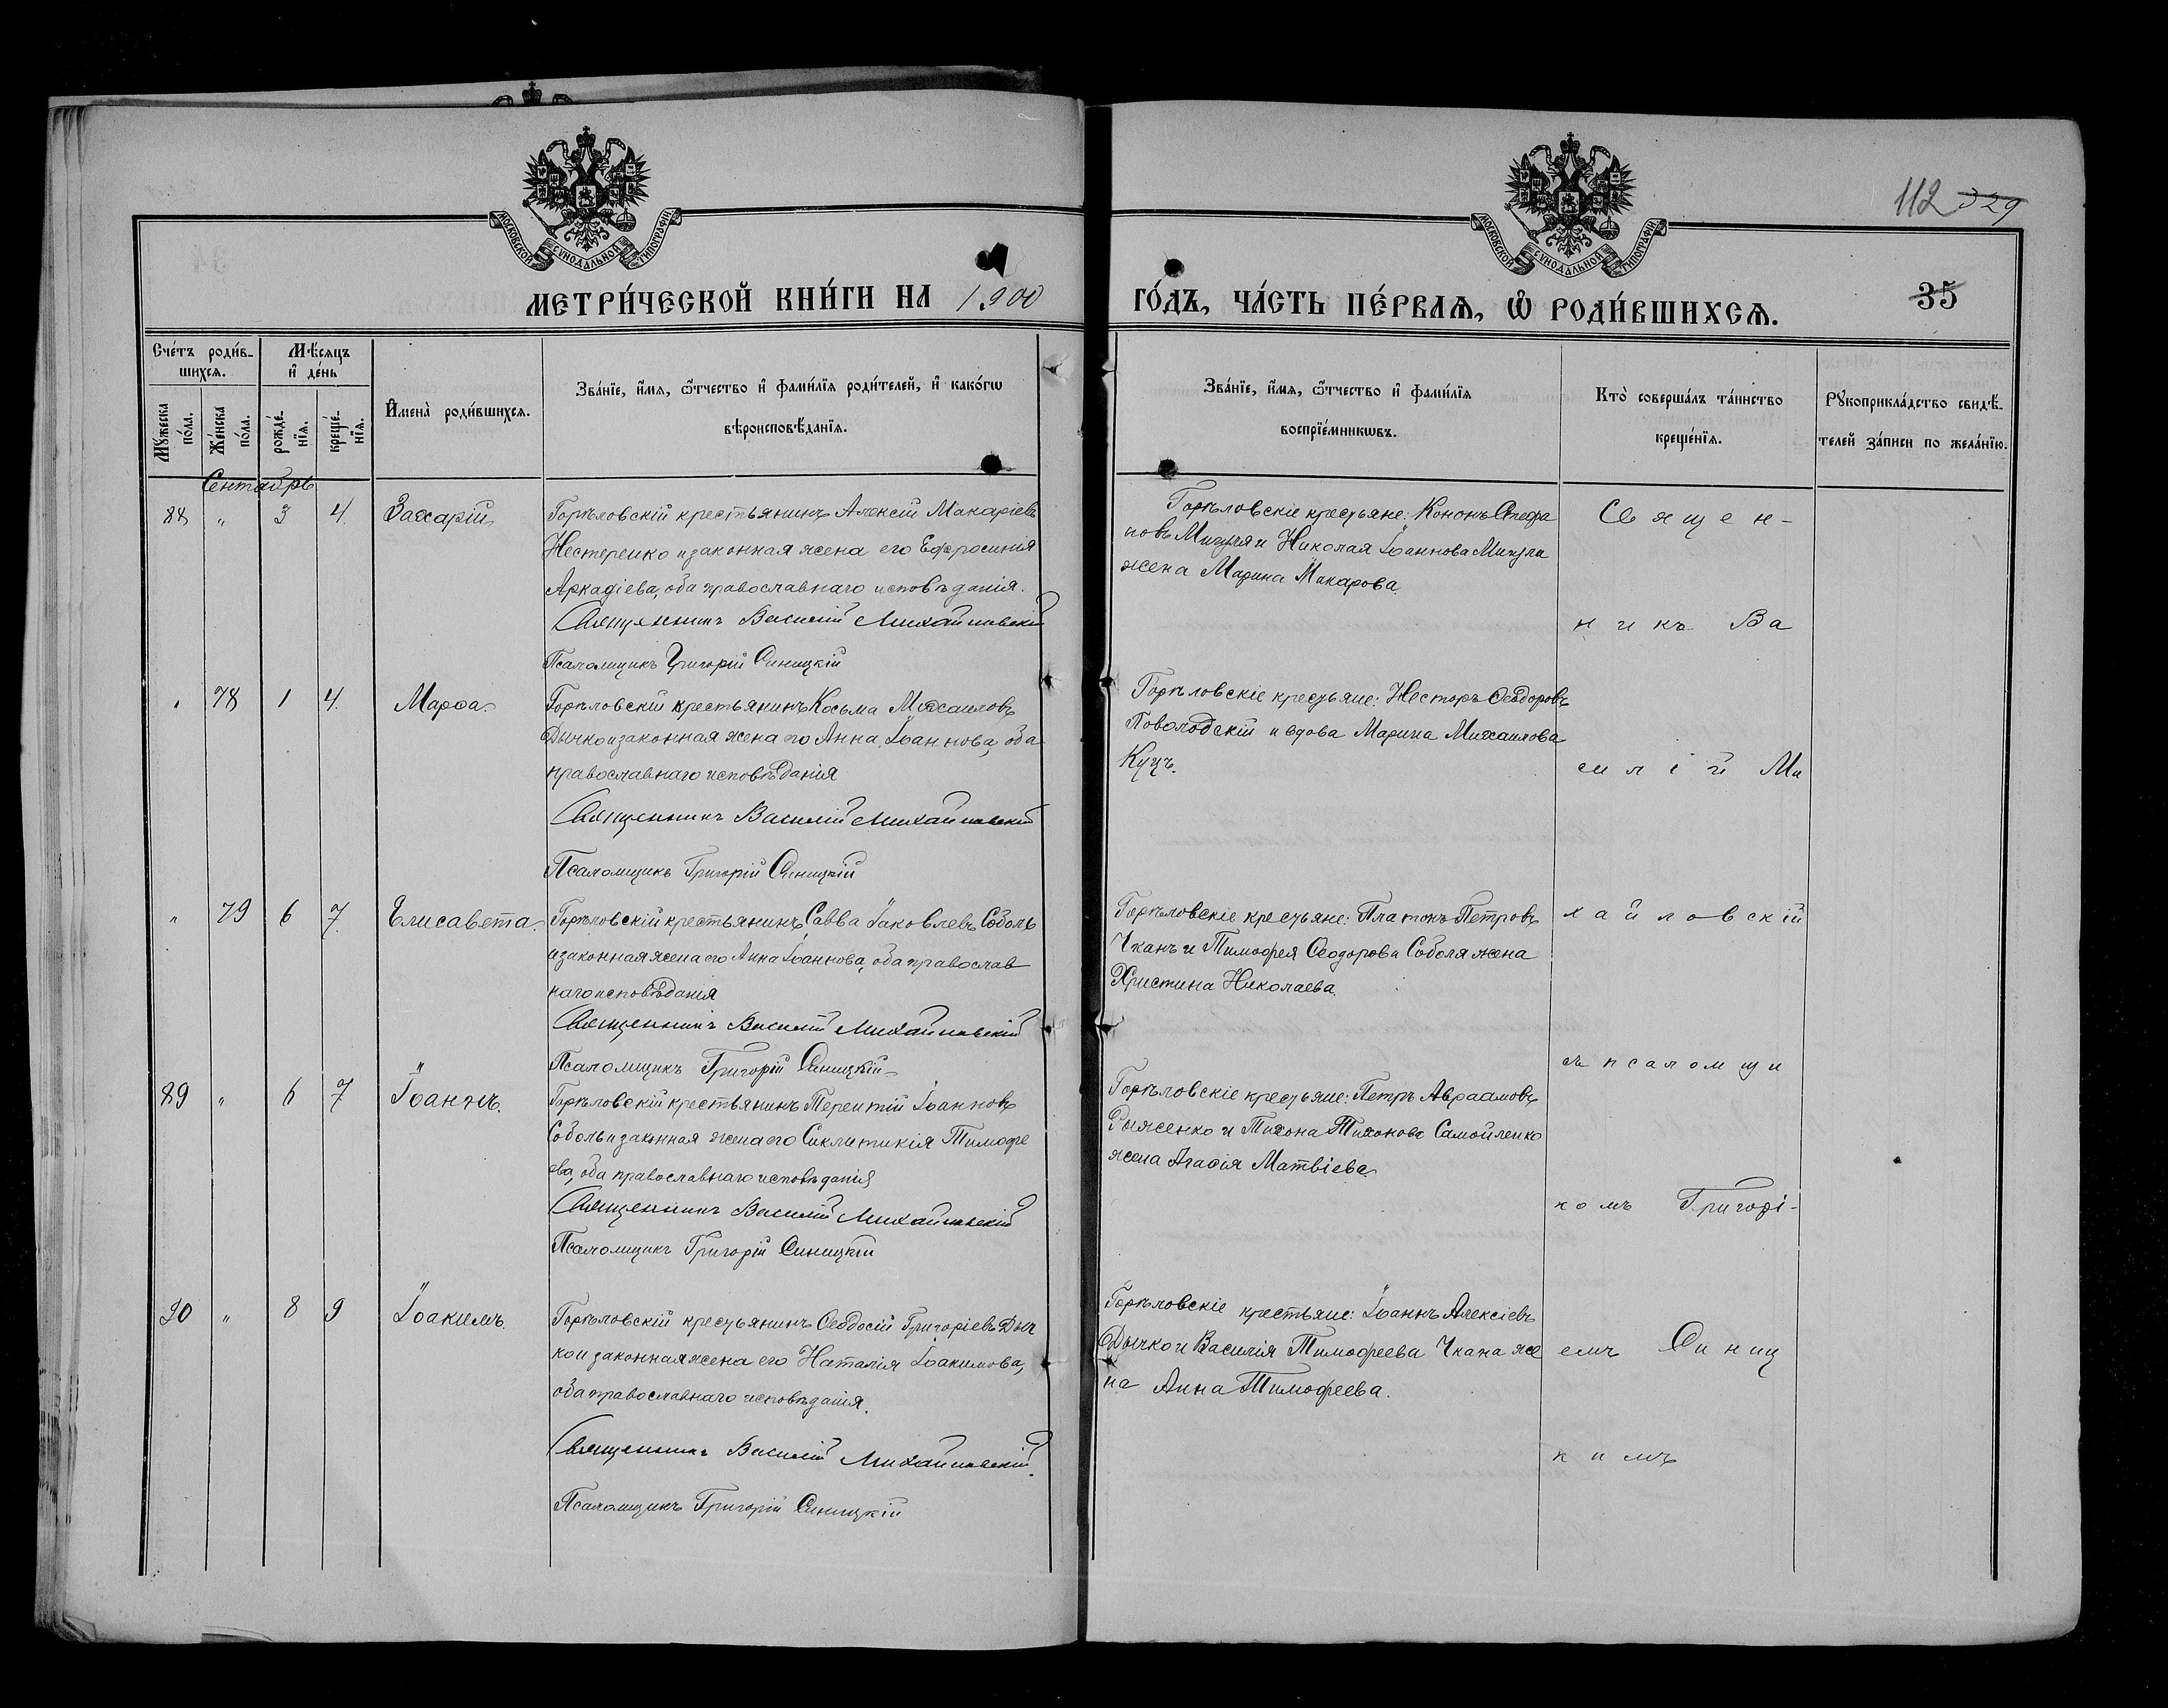 112 329
МОСКОВСКОЙ СѴНОДАЛЬНОЙ ТИПОГРАФІИ
МОСКОВСКОЙ СѴНОДАЛЬНОЙ ТИПОГРАФІИ
МЕТРИ́ЧЕСКОЙ КНИ́ГИ НА 1900
ГО́ДЪ, ЧА́СТЬ ПЕ́РВАѦ, Ѡ҆ РОДИ́ВШИХСѦ.
35
Сче́тъ роди́в-
шихсѧ.
Мꙋ́жеска по́ла.
Же́нска по́ла.
Мѣ́сѧцъ
и҆ де́нь
рожде́-
нїѧ.
креще́-
нїѧ.
И҆мена̀ роди́вшихсѧ.
Зва́нїе, и҆́мѧ, ѻ҆́тчество и҆ фами́лїѧ роди́телей, и҆ како́гѡ
вѣроисповѣ́данїѧ.
Зва́нїе, и҆́мѧ, ѻ҆́тчество и҆ фами́лїѧ
воспрїе́мникѡвъ.
Кто̀ соверша́лъ та́инство
креще́нїѧ.
Рꙋкоприкла́дство свидѣ́-
телей за́писи по жела́нїю.
Сентябрь
88 " 3 4. Захарій
Горѣловскій крестьянинъ Алексій Макаріевъ
Нестеренко и законная жена его Ефросинія
Аркадіева, оба православнаго исповѣданія.
Священникъ Василій Михайловскій
Псаломщикъ Григорій Синицкій
Горѣловскіе крестьяне: Кононъ Стефа
новъ и Николая Іоаннова
жена Марина Макарова.
" 78 1 4. Марѳа.
Горѣловскій крестьянинъ Косьма Михаиловъ
Дычко и законная жена его Анна Іоаннова, оба
православнаго исповѣданія
Священникъ Василій Михайловскій
Псаломщикъ Григорій Синицкій
Горѣловскіе крестьяне: Несторъ Ѳеодоровъ
Поволодскій и вдова Марина Михаилова
Куцъ.
" 79 6 7. Елисавета.
Горѣловскій крестьянинъ Савва Іаковлевъ Соболь
и законная жена его Анна Іоаннова, оба православ
наго исповѣданія
Священникъ Василій Михайловскій
Псаломщикъ Григорій Синицкій
Горѣловскіе крестьяне: Платонъ Петровъ
Чканъ и Тимоѳея Ѳеодорова Соболя жена
Христина Николаева.
89 " 6 7 Іоаннъ.
Горѣловскій крестьянинъ Терентій Іоанновъ
Соболь и законная жена его Синклитикія Тимоѳе
ева, оба православнаго исповѣданія
Священникъ Василій Михайловскій
Псаломщикъ Григорій Синицкій
Горѣловскіе крестьяне: Петръ Авраамовъ
и Тихона Тихонова Самойленко
жена Агаѳія Матвіева
90 " 8 9 Іоакимъ.
Горѣловскій крестьянинъ Ѳеодосій Григоріевъ Дыч
ко и законная жена его Наталія Іоакимова,
оба православнаго исповѣданія.
Священникъ Василій Михайловскій.
Псаломщикъ Григорій Синицкій
Горѣловскіе крестьяне: Іоаннъ Алексіевъ
Дычко и Василія Тимоѳеева Чкана же
на Анна Тимоѳеева.
Священ-
никъ Ва
силій Ми
хайловскій
съ псаломщи
комъ Григорі-
емъ Синиц
кимъ